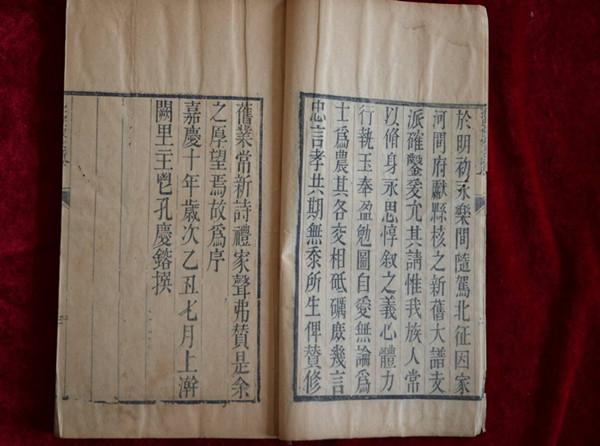 於明初永樂間隨駕北征因家
河間府獻縣核之新舊大譜支
派確鑿爰允其請惟我族人當
以脩身永思惇叙之義心體力
行執玉奉盈勉圖自愛無論爲
士爲農其各交相砥礪庶幾言
忠言孝共期無忝所生俾賛修
舊業常新詩禮家聲弗賛是余
之厚望焉故爲序
嘉慶十年歲次乙丑七月上澣
闕里主鬯孔慶鎔撰